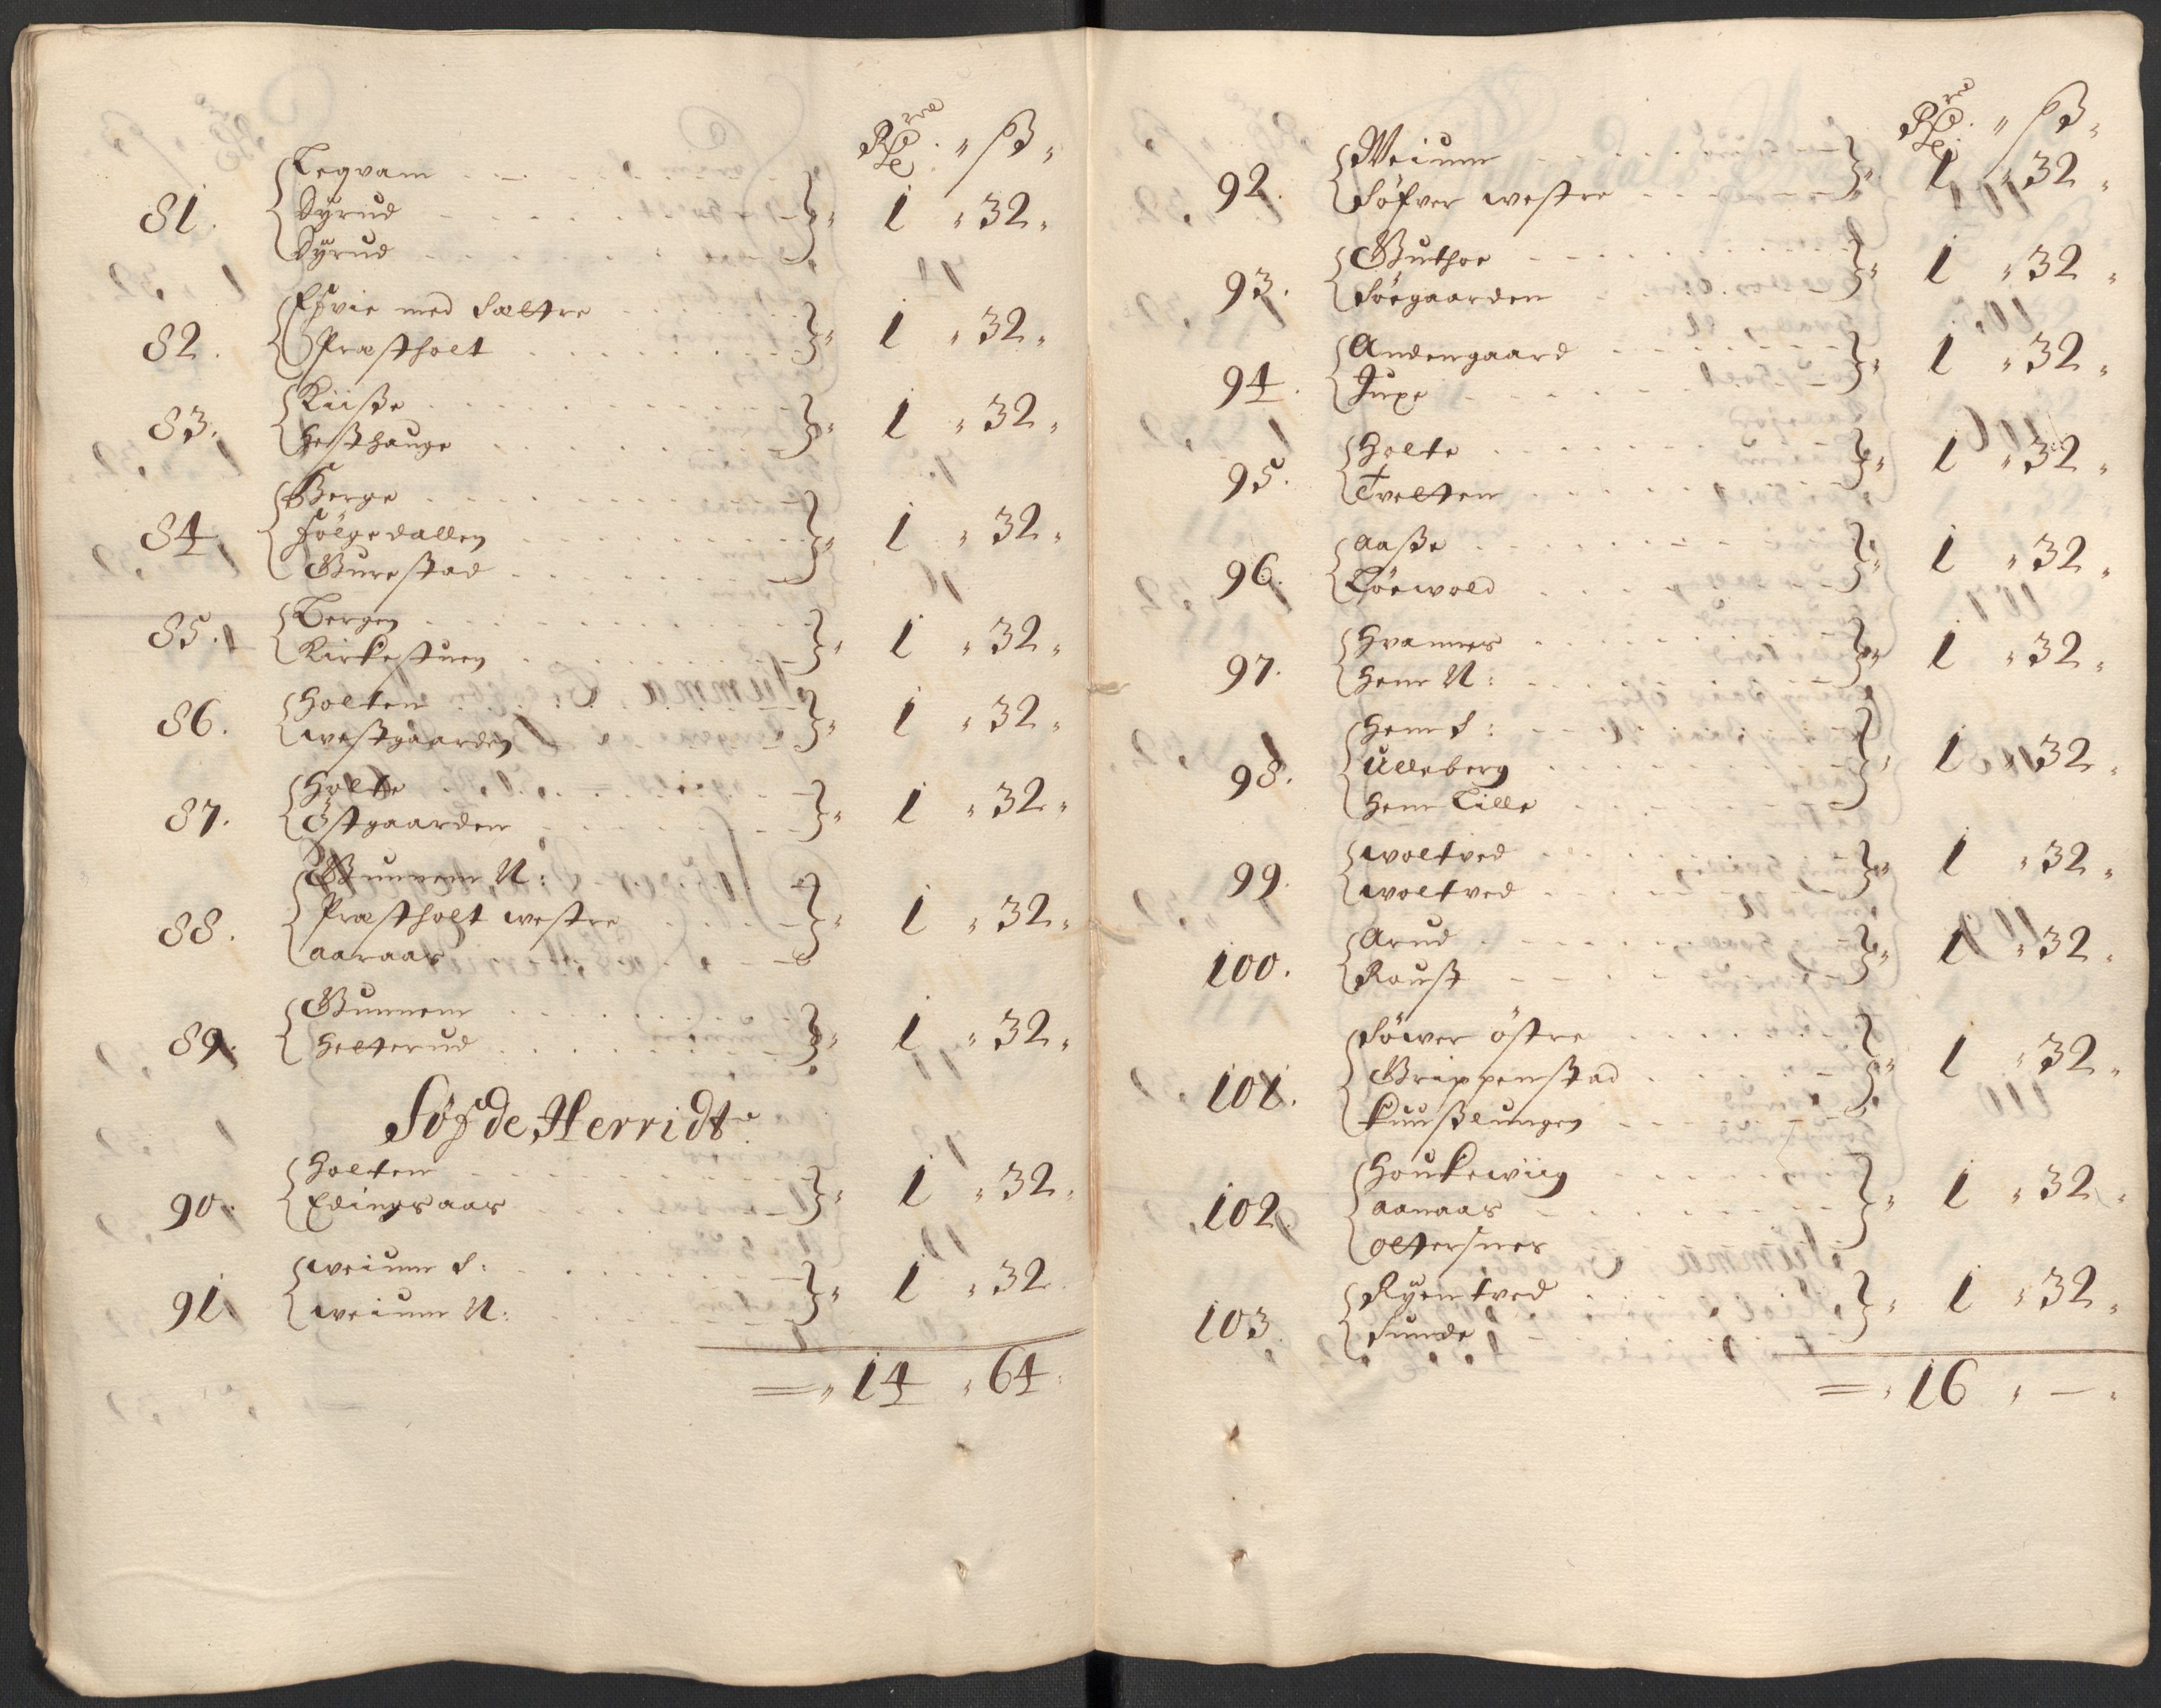 Rdr. ß
81. Legvam
Dyrud
Dyrud 1 32
82. Espvie med Sæltre
Præstholt 1 32
83. Riiße
Hesthauge 1 32
84 Berge
Følgedallen
Gurestad 1 32
85. Bergen
Kirkestuen 1 32
86. Holten
westgaarden 1 32
87. Holte
Østgaarden 1 32
88. Gunnem N:
Præstholt westre
aaraas 1 32
89. Gunnem
Helterud 1 32
Søfde Herridt
90. Holten
Edingsaas 1 32
91 weium S:
weium N: 1 32
= 14 64
Rdr. ß
92. Weium
Søfver westre 1 32
93. Guthoe
Søegaarden 1 32
94. Andengaard
Juxe 1 32
95. Holte
Tvelten 1 32
96. Aaße
Løewold 1 32
97. Hvannes
Hem N: 1 32
98. Hem S:
Ulleberg
Hem Lille 1 32
99. woltved
woltved 1 32
100. Arud
Roust 1 32
101. Søwer østre
Grippenstad
Kuußlungen 1 32
102. Houkewiig
aanaas
oltersnes 1 32
103. Ryentved
Sunde 1 32
= 16 –